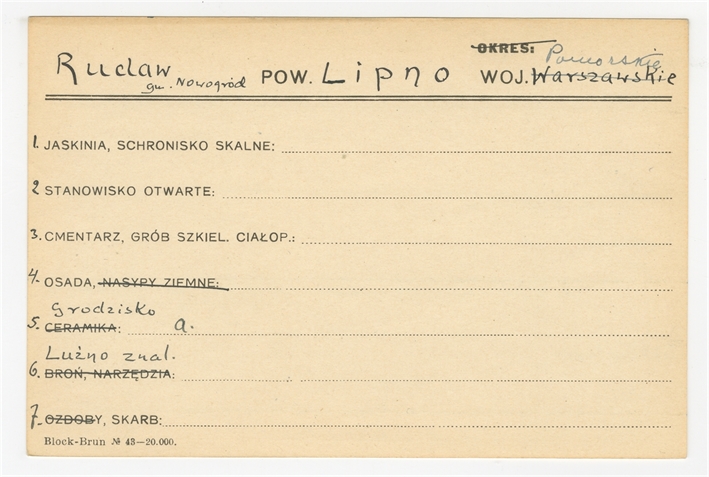 OKRES: Pomorskie
Rudaw POW. Lipno WOJ. Warszawskie
gm. Nowogród
1. JASKINIA, SCHRONISKO SKALNE:
2 STANOWISKO OTWARTE:
3. CMENTARZ, GRÓB SZKIEL. CIAŁOP.:
4. OSADA, NASYPY ZIEMNE:
Grodzisko
5. CERAMIKA: a.
Luźno znal.
6. BROŃ, NARZĘDZIA:
7. OZDOBY, SKARB:
Block-Brun № 43—20.000.